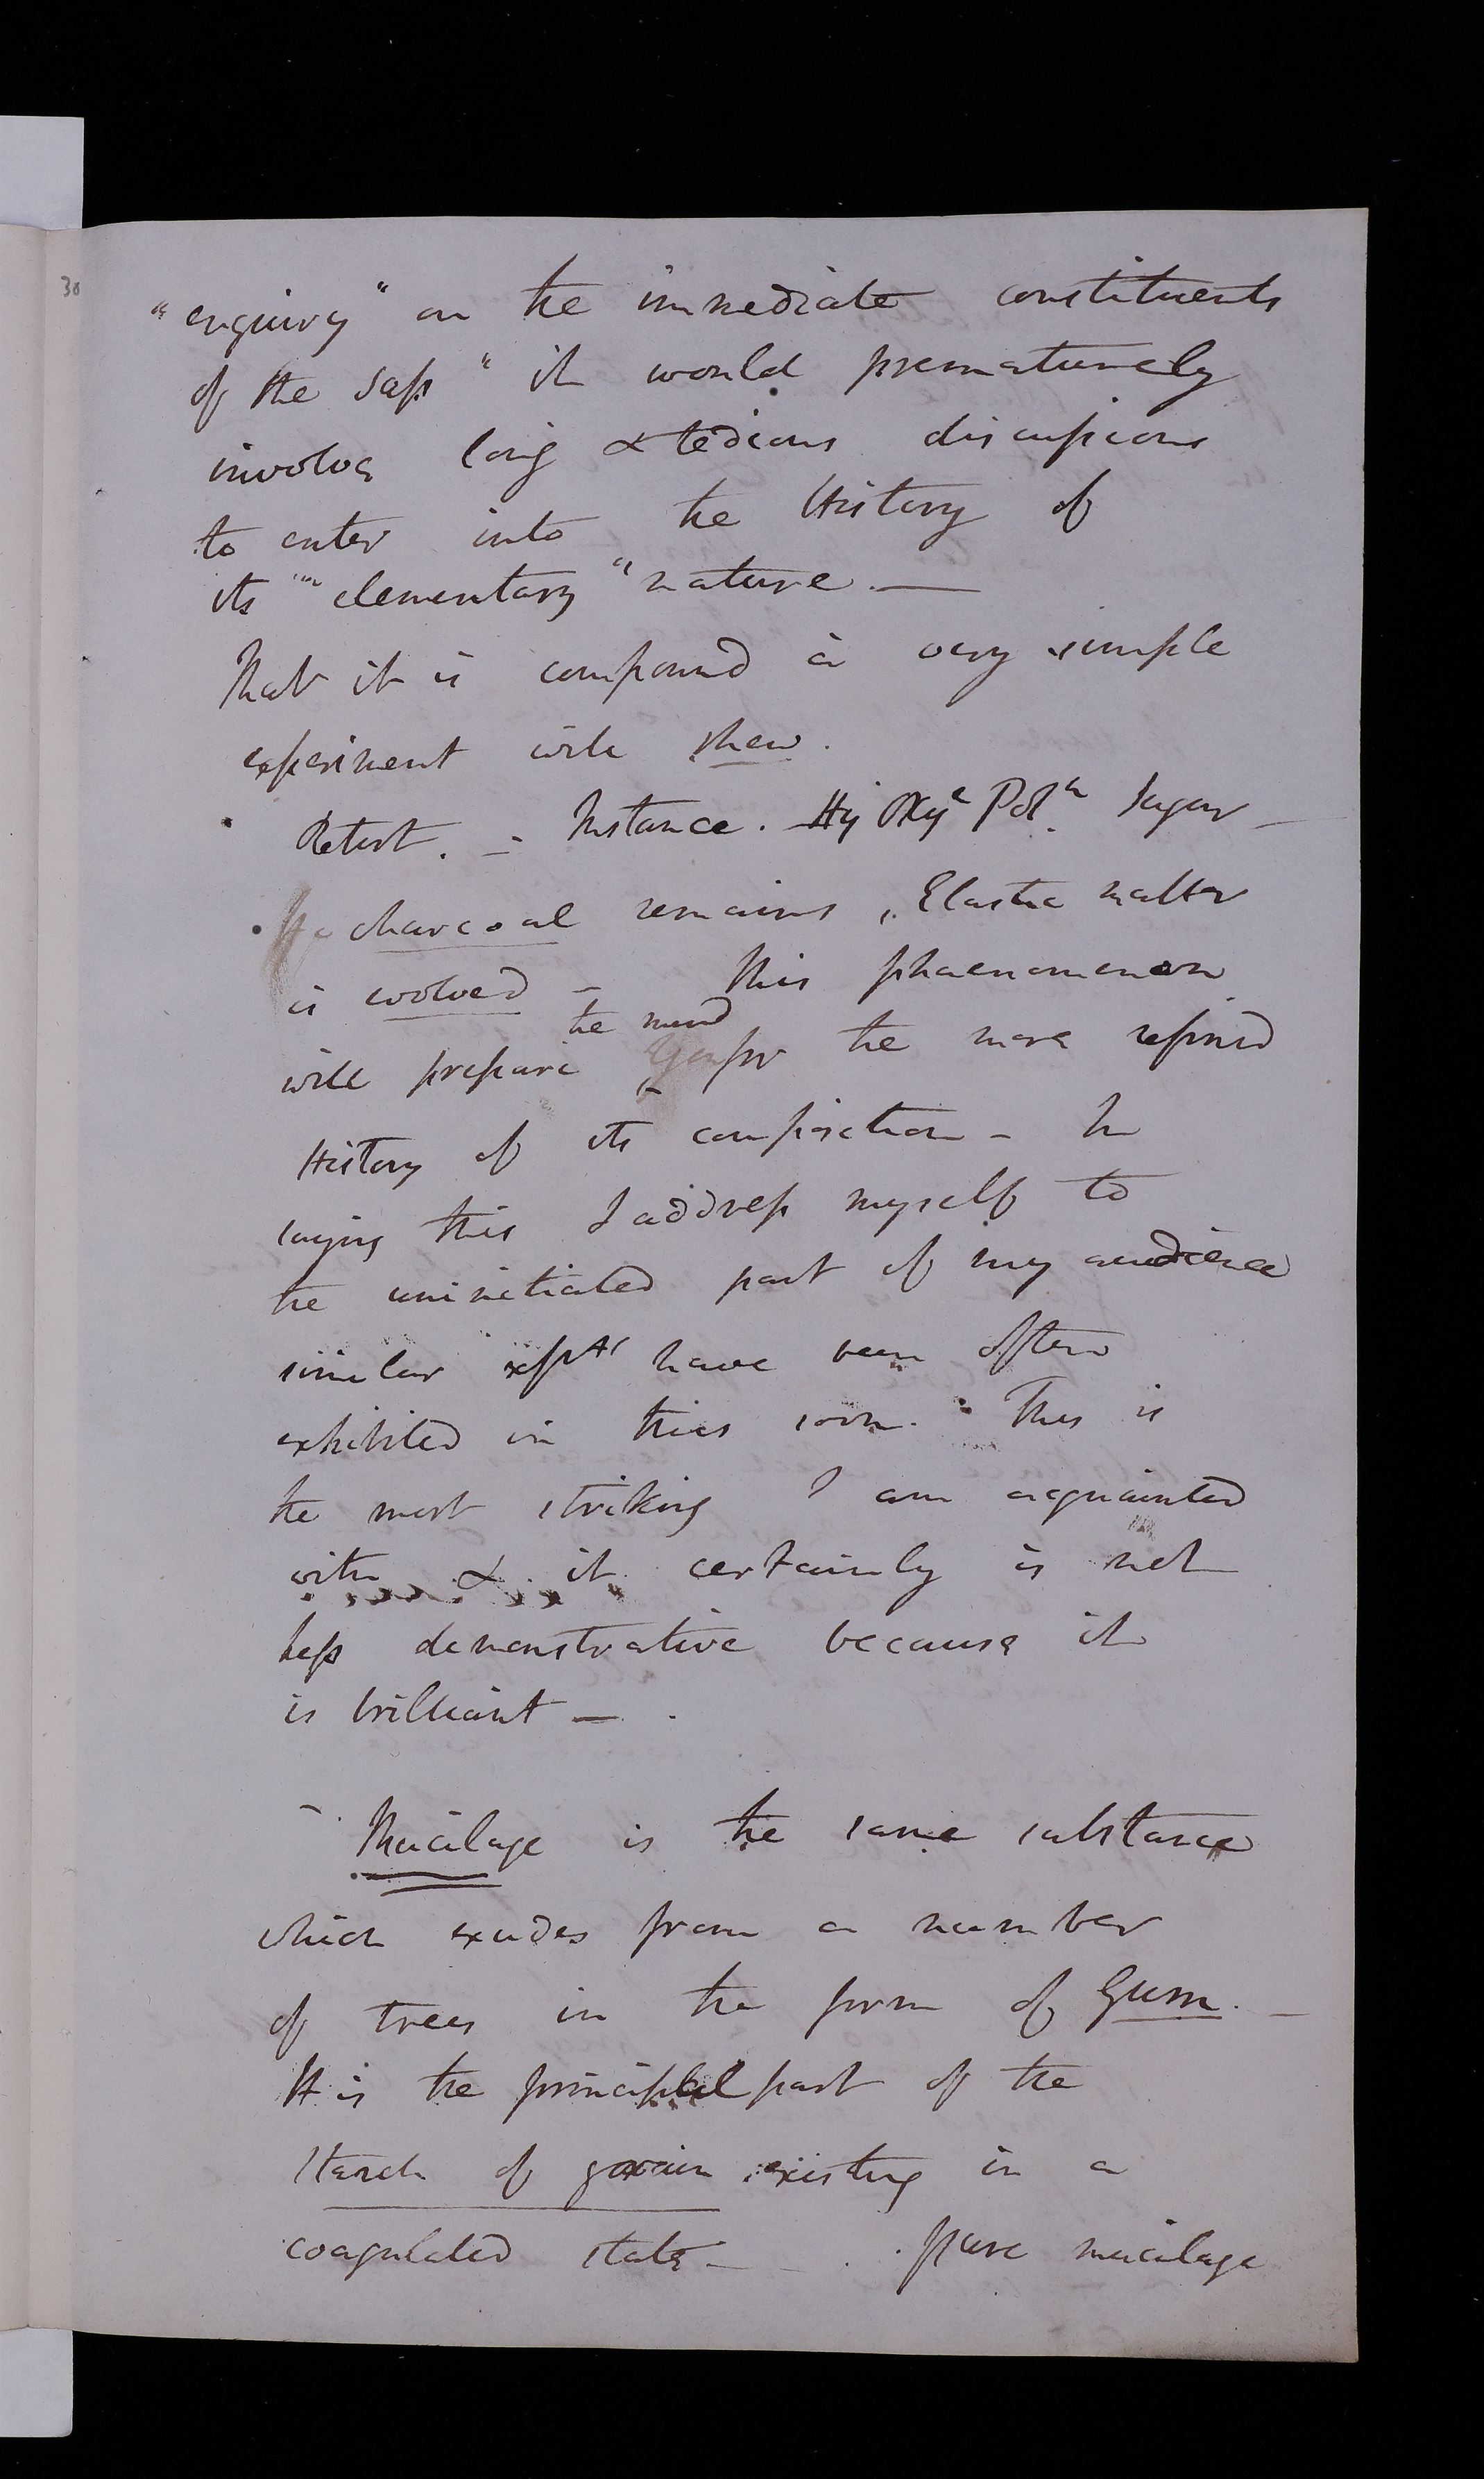 30
"enquiry" on the immediate constituents
of the sap" it would prematurely
involve long & tedious discussions
to enter into the History of
its "elementary" nature. —
That it is compound a very simple
experiment will shew.
Retort. = Instance. Hy Oxye Potn Sugar —
charcoal remains, Elastic matter
is evolved – This phaenomenon
the mind
will prepare for the more refined
History of its composition – In
saying this I address myself to
the uninitiated part of my audience
similar expts have been often
exhibited in this room. This is
the most striking I am acquainted
with & it certainly is not
less demonstrative because it
is brilliant —
– Mucilage is the same substance
which exudes from a number
of trees in the form of Gum. —
It is the principal part of the
starch of grain existing in a
coagulated state – pure mucilage